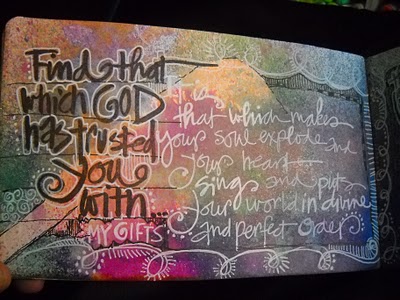 Find that
which GOD
has trusted
you
with...
MY GIFTS
It is
that which makes
your soul explode and
your heart
sing and puts
your world in divine
and perfect Order